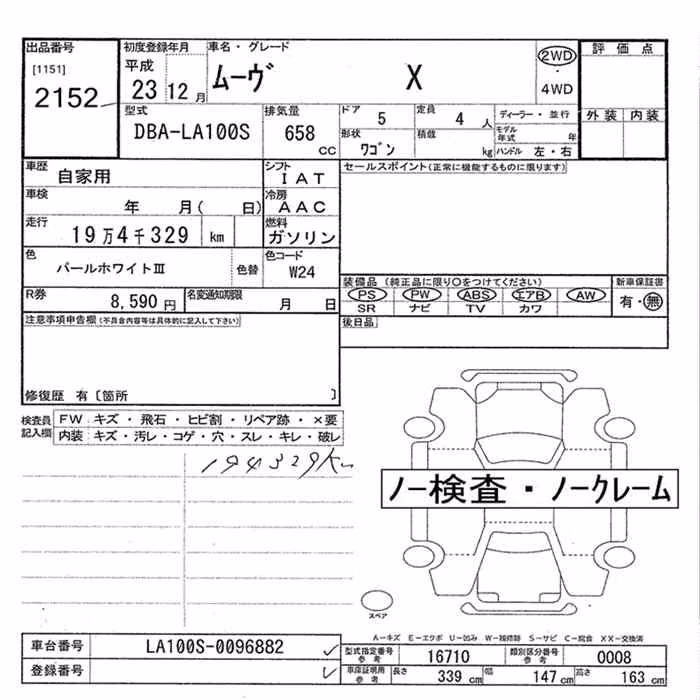 出品番号
[1151]
2152
初度登録年月
平成
23 12 月
車名・グレード
ムーヴ X
2WD
・
4WD
評価点
外装 内装
型式
DBA-LA100S
排気量
658 CC
ドア 5
定員 4 人
形状 ワゴン
積載 kg
ディーラー・並行
モデル年式 年
ハンドル 左・右
車歴 自家用
シフト IAT
セールスポイント(正常に機能するものに限ります)
車検 年 月( 日)
冷房 AAC
走行 19万4千329 km
燃料 ガソリン
色 パールホワイトⅢ 色替
色コード W24
装備品 (純正品に限り○をつけてください)
新車保証書
PS PW ABS エアB AW
SR ナビ TV カワ
有・無
R券 8,590 円
名変通知期限 月 日
後日品
注意事項申告欄(不具合内容等は具体的に記入して下さい)
修復歴 有〔箇所 〕
検査員記入欄
FW キズ・飛石・ヒビ割・リペア跡・×要
内装 キズ・汚レ・コゲ・穴・スレ・キレ・破レ
194329Km
ノー検査・ノークレーム
スペア
A-キズ E-エクボ U-凹み W-補修跡 S-サビ C-腐食 XX-交換済
車台番号 LA100S-0096882
登録番号
型式指定番号 参考 16710
類別区分番号 参考 0008
車庫証明用 参考 長さ 339 cm 幅 147 cm 高さ 163 cm